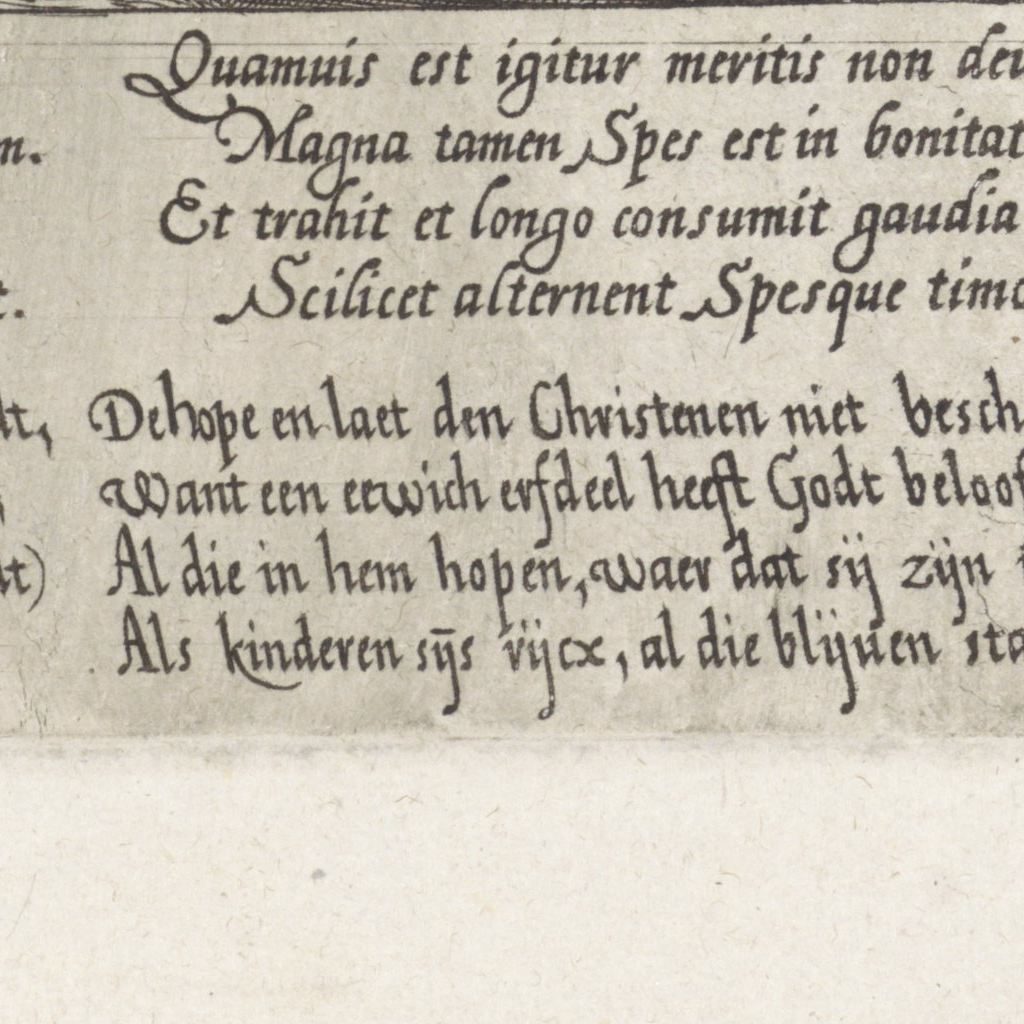 Quamuis est igitur meritis non
n. Magna tamen Spes est in
Et trahit et longo consumit gaudia
t. Scilicet alternent Spesque
dt, De hope en laet den Christenen niet
Want een eewich erfdeel heeft Godt
dt) Al die in hem hopen, waer dat sij zijn
Als kinderen sijns rijcx, al die blijuen